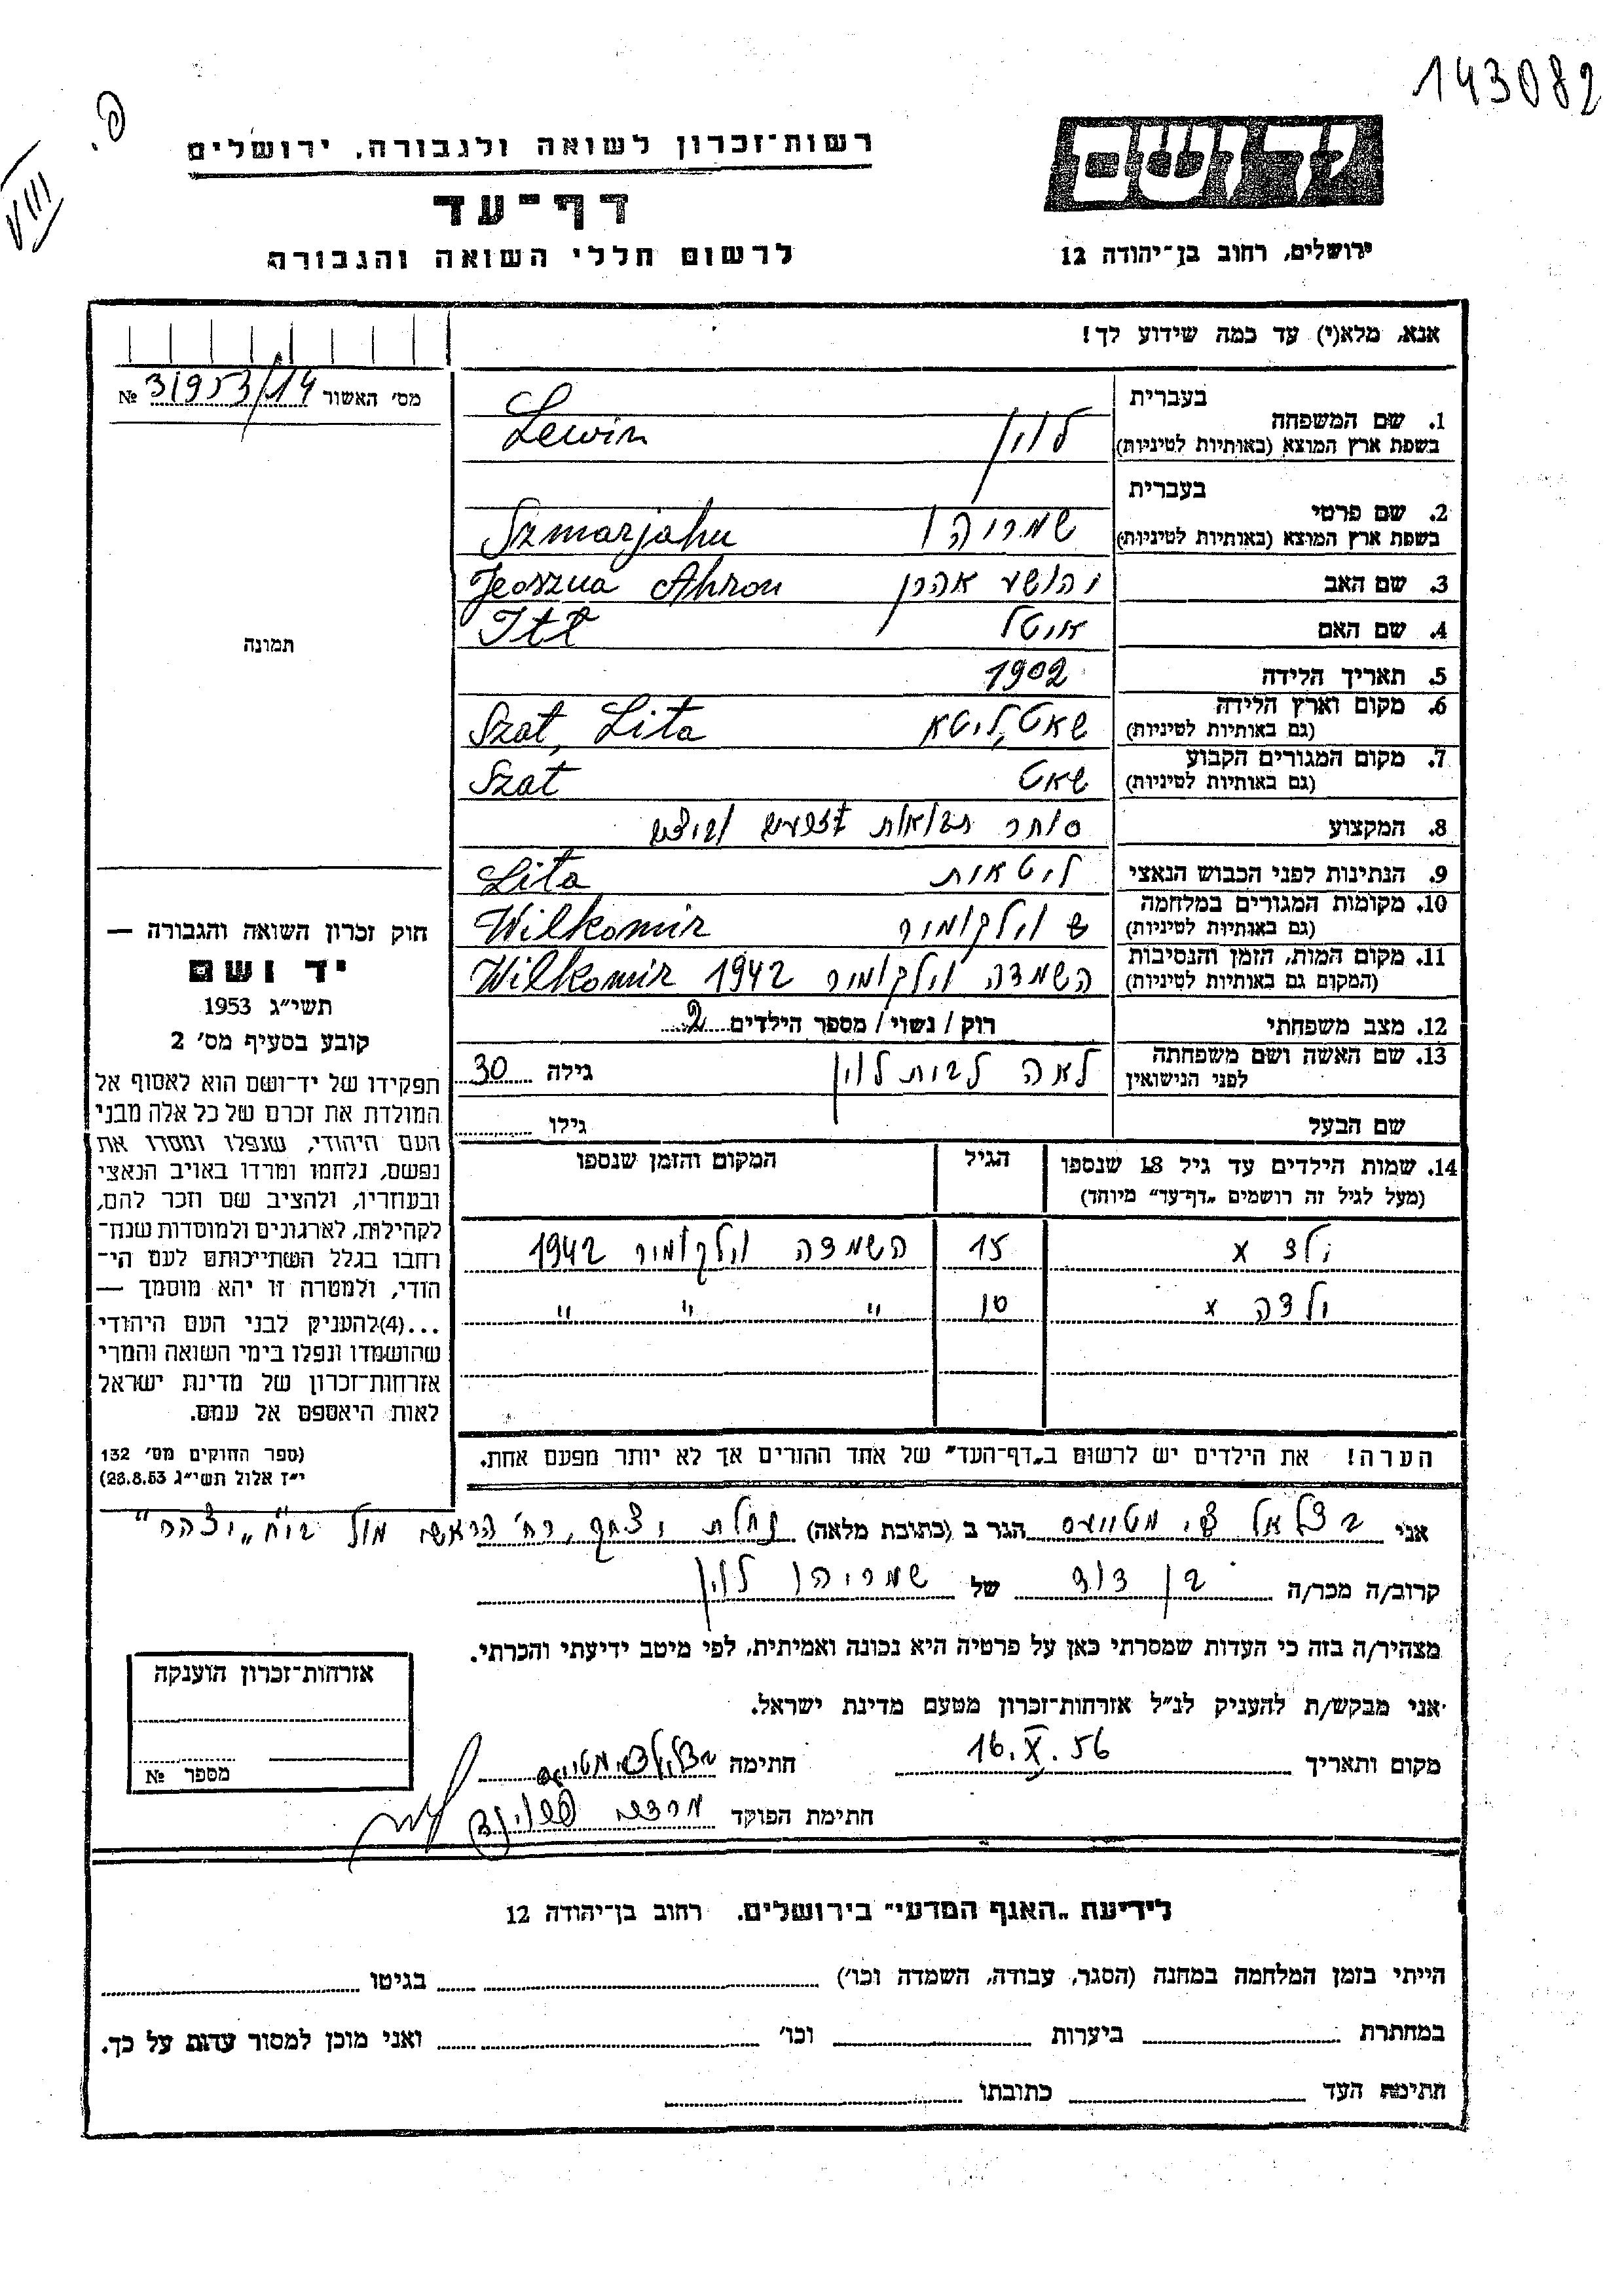 143082
פ.
VIII
יד ושם
רשות־זכרון לשואה ולגבורה, ירושלים
דף־עד
לרשום חללי השואה והגבורה
ירושלים, רחוב בן־יהודה 12
אנא, מלא(י) עד כמה שידוע לך!
מס׳ האשור 31953/14 №
בעברית
1. שם המשפחה
בשפת ארץ המוצא (באותיות לטיניות)
לוין Lewin
בעברית
2. שם פרטי
בשפת ארץ המוצא (באותיות לטיניות)
שמריהו Szmarjahu
3. שם האב יהושע אהרן Jeoszua Ahron
4. שם האם איטל Itl
5. תאריך הלידה 1902
6. מקום וארץ הלידה
(גם באותיות לטיניות)
שאט, ליטא Szat, Lita
7. מקום המגורים הקבוע
(גם באותיות לטיניות)
שאט Szat
8. המקצוע סוחר תבואות
9. הנתינות לפני הכבוש הנאצי ליטאית Lita
10. מקומות המגורים במלחמה
(גם באותיות לטיניות)
וילקומיר Wilkomir
11. מקום המות, הזמן והנסיבות
(המקום גם באותיות לטיניות)
השמדה וילקומיר 1942 Wilkomir
12. מצב משפחתי רוק / נשוי / מספר הילדים 2
13. שם האשה ושם משפחתה
לפני הנישואין
לאה לבית לוין גילה 30
שם הבעל גילו
14. שמות הילדים עד גיל 18 שנספו
(מעל לגיל זה רושמים „דף־עד״ מיוחד)
הגיל
המקום והזמן שנספו
ילד x 15 השמדה וילקומיר 1942
ילדה x 10 " " "
הערה! את הילדים יש לרשום ב„דף־העד״ של אחד ההורים אך לא יותר מפעם אחת.
תמונה
חוק זכרון השואה והגבורה —
יד ושם
תשי״ג 1953
קובע בסעיף מס׳ 2
תפקידו של יד־ושם הוא לאסוף אל
המולדת את זכרם של כל אלה מבני
העם היהודי, שנפלו ומסרו את
נפשם, נלחמו ומרדו באויב הנאצי
ובעוזריו, ולהציב שם וזכר להם,
לקהילות, לארגונים ולמוסדות שנח־
רבו בגלל השתייכותם לעם הי־
הודי, ולמטרה זו יהא מוסמך —
...(4)להעניק לבני העם היהודי
שהושמדו ונפלו בימי השואה והמרי
אזרחות־זכרון של מדינת ישראל
לאות היאספם אל עמם.
(ספר החוקים מס׳ 132
י״ז אלול תשי״ג 28.8.53)
אני בצלאל מטוועס הגר ב (כתובת מלאה) נחלת יצחק, רח׳ הראשי מול ביח״ „יצהר״
קרוב/ה מכר/ה בן דוד של שמריהו לוין
מצהיר/ה בזה כי העדות שמסרתי כאן על פרטיה היא נכונה ואמיתית, לפי מיטב ידיעתי והכרתי.
אני מבקש/ת להעניק לנ״ל אזרחות־זכרון מטעם מדינת ישראל.
מקום ותאריך 16.X.56 חתימה
חתימת הפוקד
אזרחות־זכרון הוענקה
מספר №
לידיעת „האגף המדעי״ בירושלים. רחוב בן־יהודה 12
הייתי בזמן המלחמה במחנה (הסגר, עבודה, השמדה וכו׳) בגיטו
במחתרת ביערות וכו׳ ואני מוכן למסור עדות על כך.
חתימת העד כתובתו